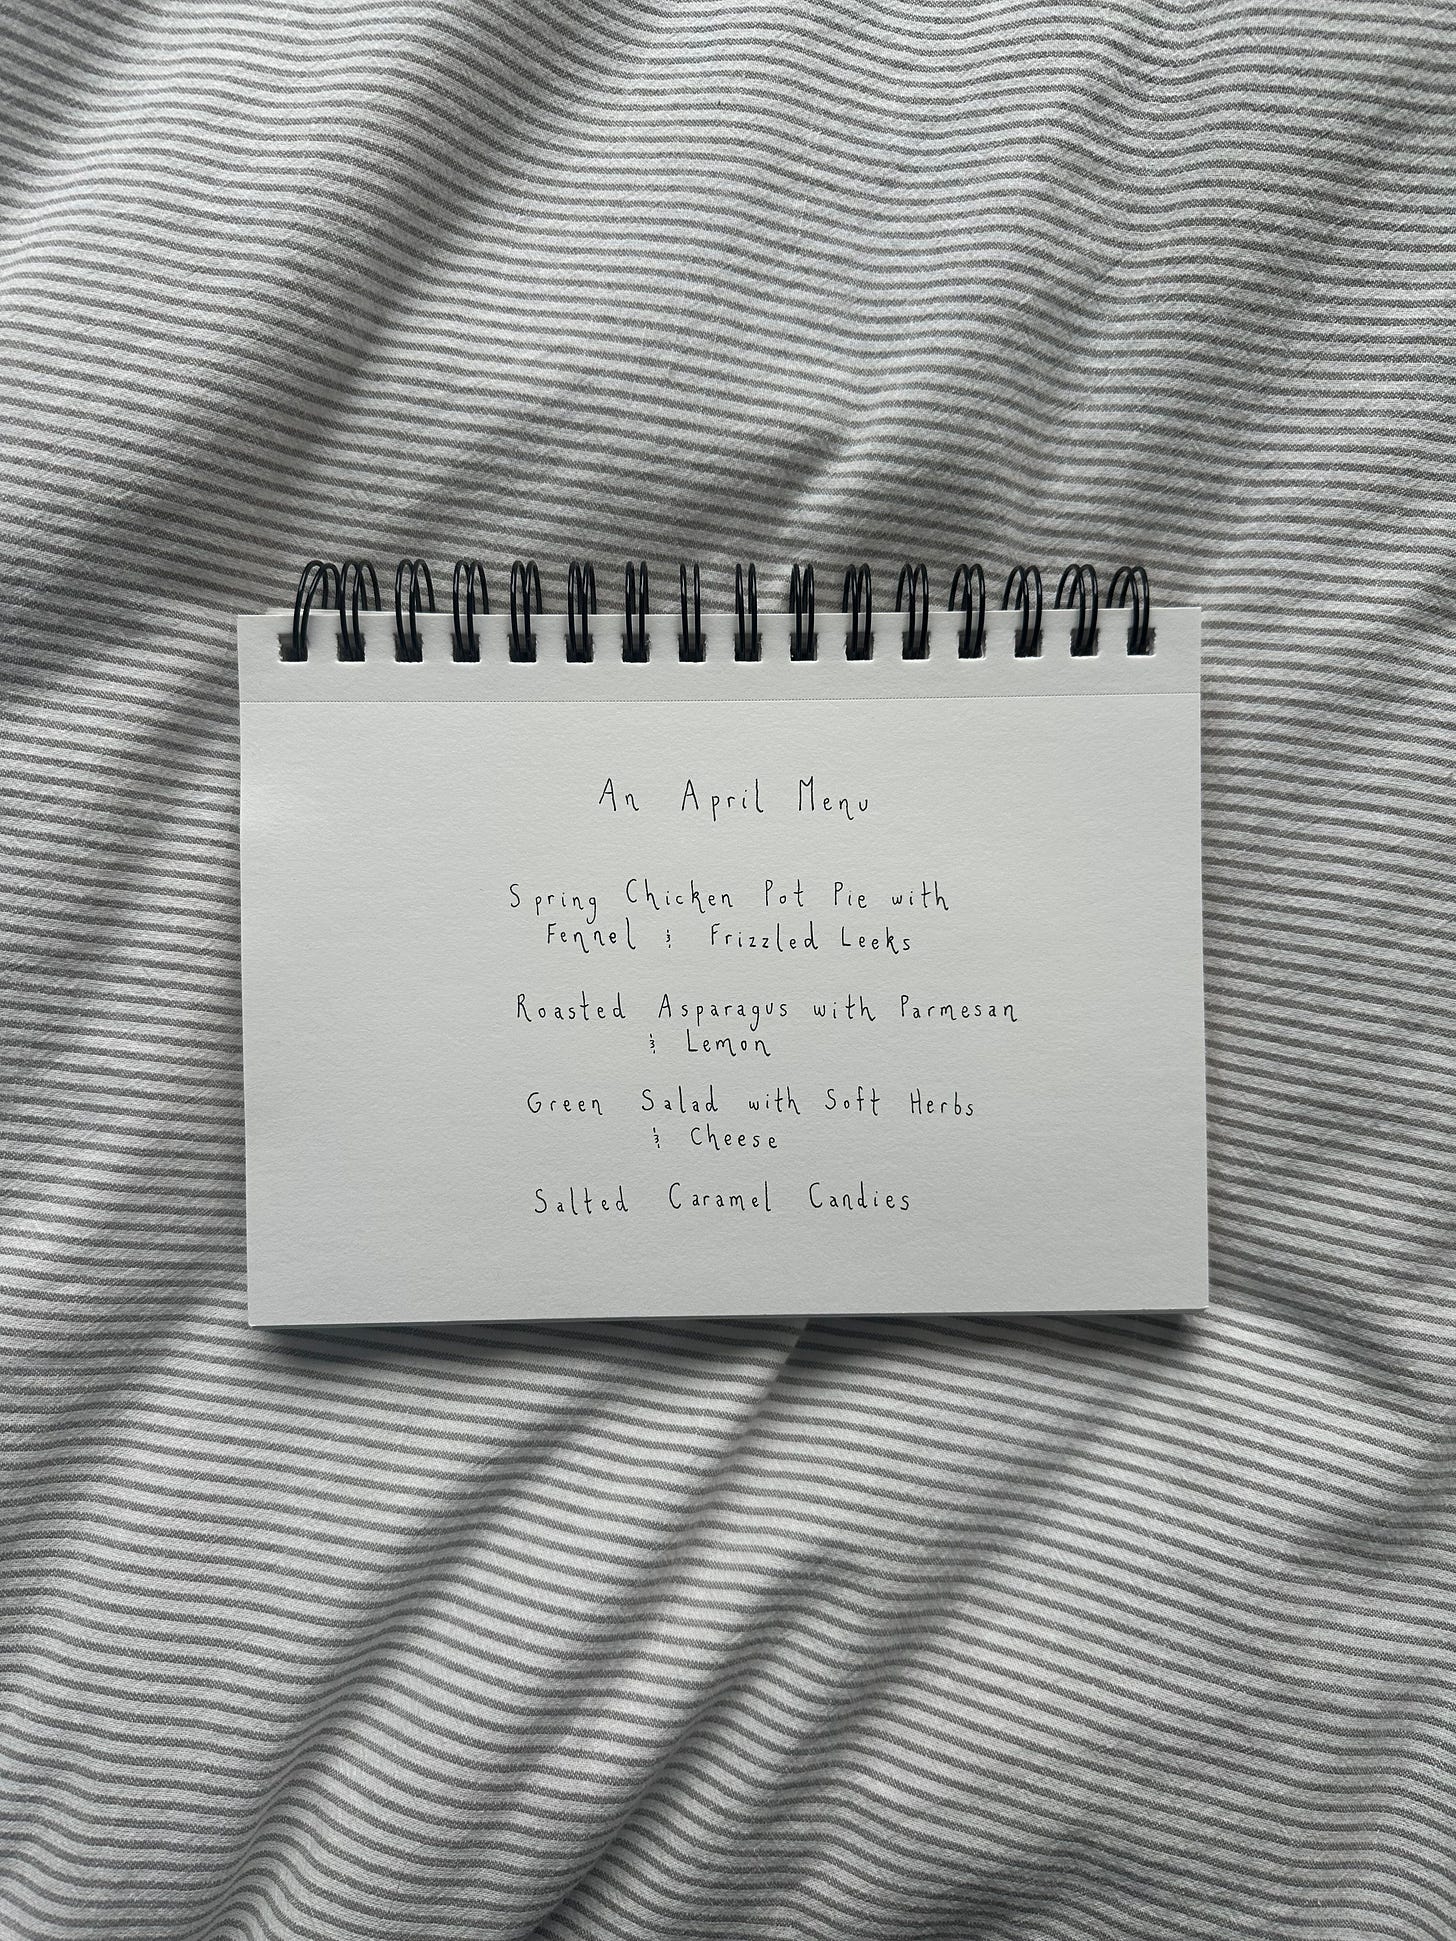 An April Menu
Spring Chicken Pot Pie with
Fennel & Frizzled Leeks
Roasted Asparagus with Parmesan
& Lemon
Green Salad with Soft Herbs
& Cheese
Salted Caramel Candies